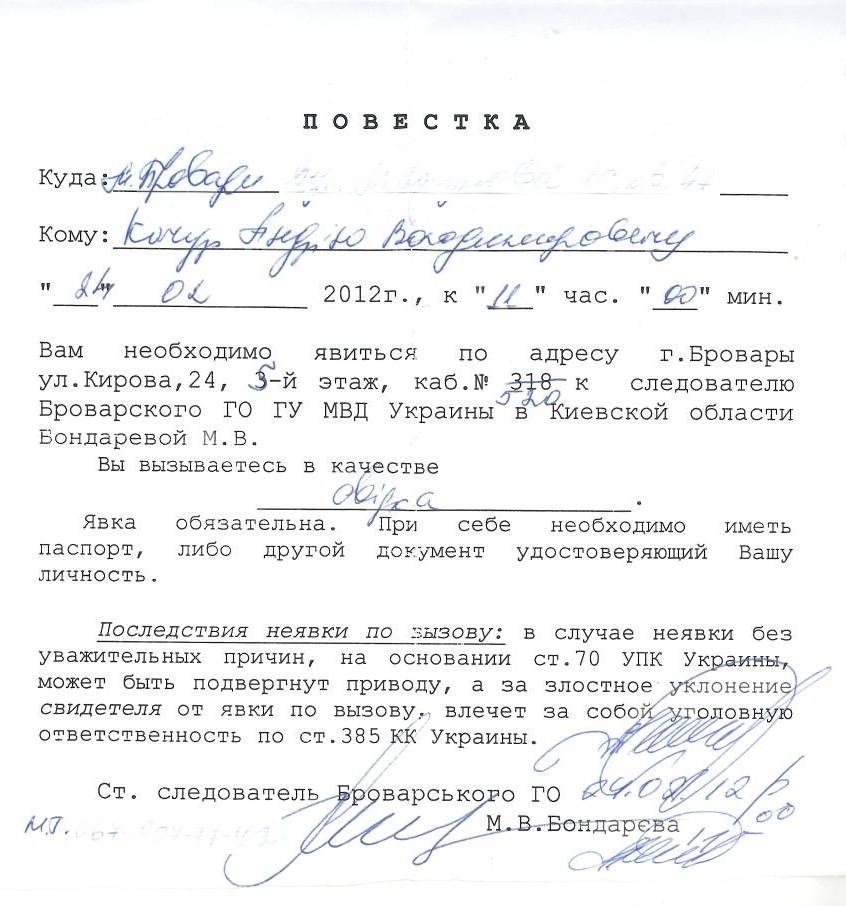 ПОВЕСТКА
Куда: м. Бровари
Кому: Качур Андрію Володимировичу
"24" 02 2012г., к "11" час. "00" мин.
Вам необходимо явиться по адресу г.Бровары
ул.Кирова,24, 5-й этаж, каб.№ 318 520 к следователю
Броварского ГО ГУ МВД Украины в Киевской области
Бондаревой М.В.
Вы вызываетесь в качестве
свідка.
Явка обязательна. При себе необходимо иметь
паспорт, либо другой документ удостоверяющий Вашу
личность.
Последствия неявки по вызову: в случае неявки без
уважительных причин, на основании ст.70 УПК Украины,
может быть подвергнут приводу, а за злостное уклонение
свидетеля от явки по вызову, влечет за собой уголовную
ответственность по ст.385 КК Украины.
Ст. следователь Броварського ГО 24.02.12 р
М.В.Бондарєва
М.Т.